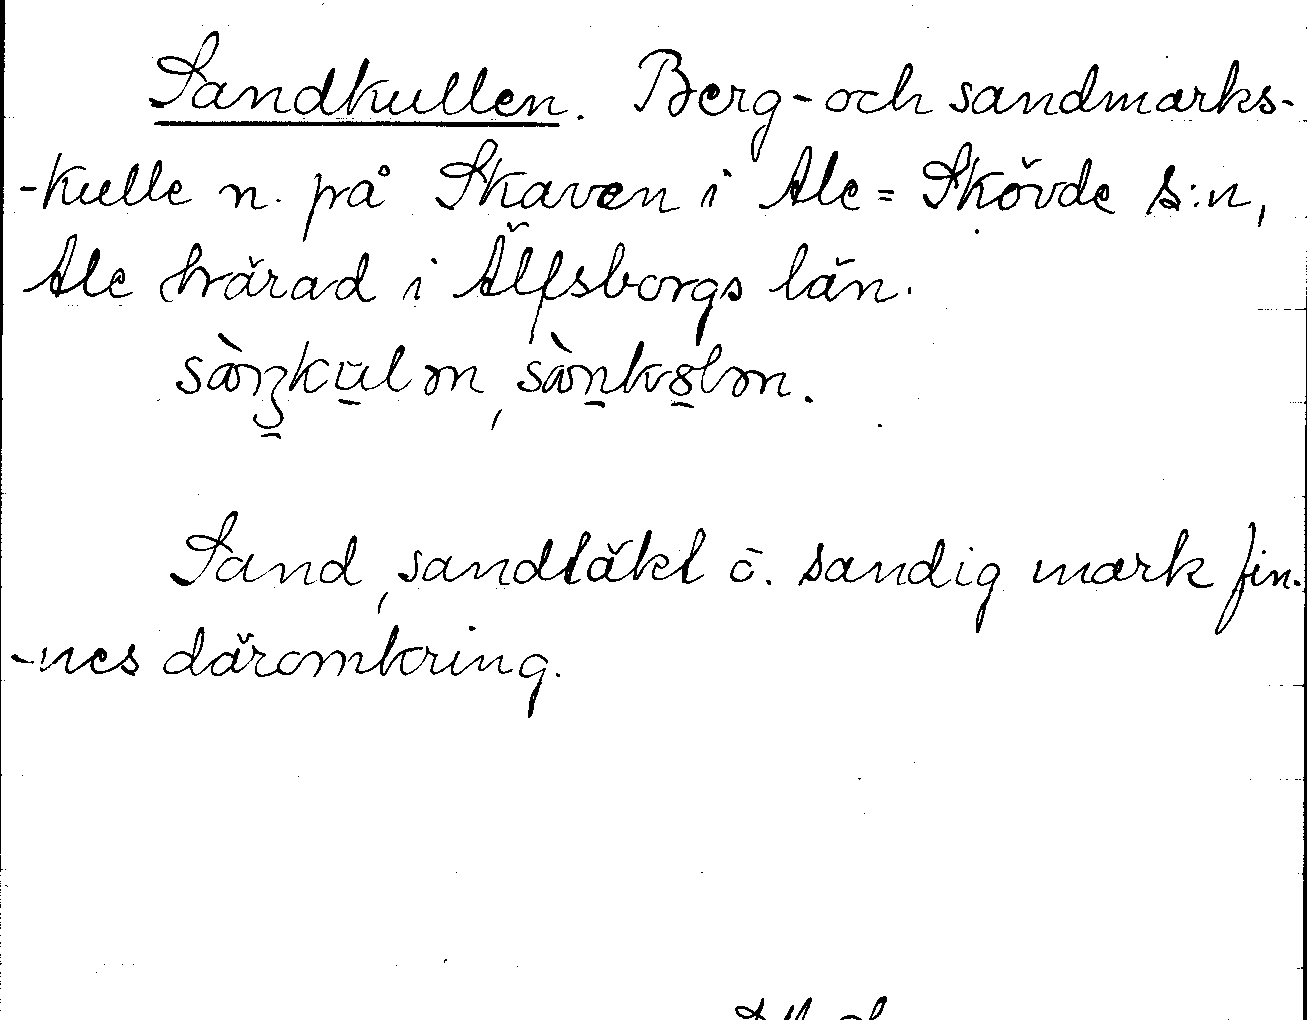 Sandkullen. Berg- och sandmarks-
-kulle n. på Skaven i Ale=Skövde s:n,
Ale härad i Älfsborgs län.
Sand, sandtäkt o. sandig mark fin-
-nes däromkring.